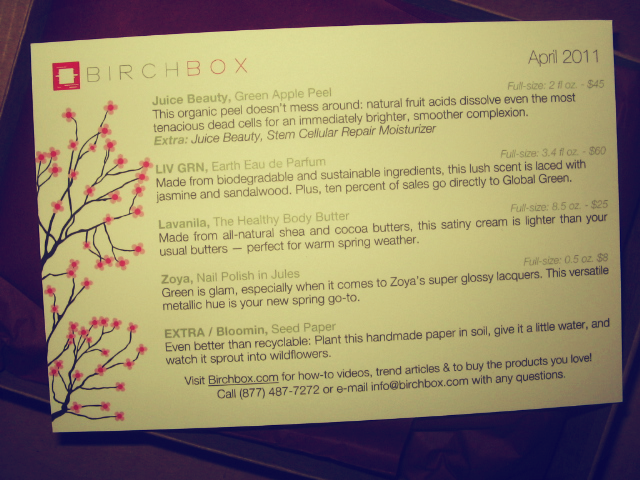 BIRCHBOX
April 2011
Juice Beauty, Green Apple Peel
Full-size: 2 fl oz. - $45
This organic peel doesn't mess around: natural fruit acids dissolve even the most
tenacious dead cells for an immediately brighter, smoother complexion.
Extra: Juice Beauty, Stem Cellular Repair Moisturizer
LIV GRN, Earth Eau de Parfum
Full-size: 3.4 fl oz. - $60
Made from biodegradable and sustainable ingredients, this lush scent is laced with
jasmine and sandalwood. Plus, ten percent of sales go directly to Global Green.
Lavanila, The Healthy Body Butter
Full-size: 8.5 oz. - $25
Made from all-natural shea and cocoa butters, this satiny cream is lighter than your
usual butters — perfect for warm spring weather.
Zoya, Nail Polish in Jules
Full-size: 0.5 oz. $8
Green is glam, especially when it comes to Zoya's super glossy lacquers. This versatile
metallic hue is your new spring go-to.
EXTRA / Bloomin, Seed Paper
Even better than recyclable: Plant this handmade paper in soil, give it a little water, and
watch it sprout into wildflowers.
Visit Birchbox.com for how-to videos, trend articles & to buy the products you love!
Call (877) 487-7272 or e-mail info@birchbox.com with any questions.